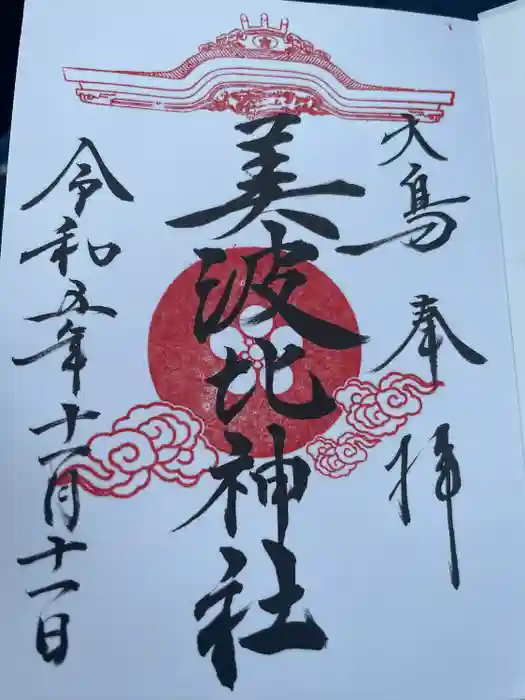 大鳥 奉拝
美波比神社
令和五年十一月十一日